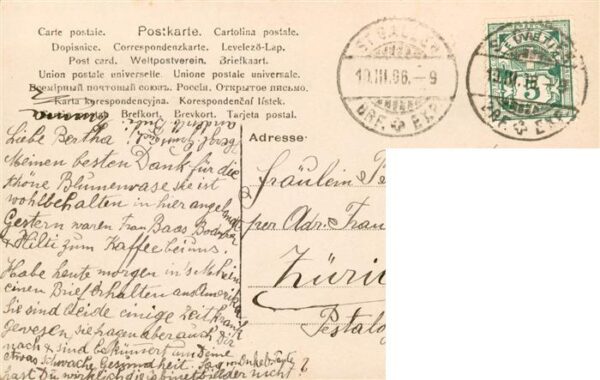 Carte postale. Postkarte. Cartolina postale.
Dopisnice. Correspondenzkarte. Levelező-Lap.
Post card. Weltpostverein. Briefkaart.
Union postale universelle. Unione postale universale.
Всемірный почтовый союз. Россія. Открытое письмо.
Karta korespondencyjna. Korespondenční lístek.
Brefkort. Brevkort. Tarjeta postal.
ST. GALLEN
10.III.06.-9
BRF. EXP.
ST. GALLEN
10.III.
9
BRF. EXP.
5
Adresse:
Liebe Bertha
Meinen besten Dank für die
schöne Blumenvase sie ist
wohlbehalten in hier angelangt
Gestern waren Frau Baas
& Hilti zum Kaffee bei uns.
Habe heute morgen
einen Brief erhalten aus Amerika
Sie sind beide einige Zeit krank
gewesen, sie aber auch Dir
nach & sind bekümert um Deine
etwas schwache Gesundheit.
hast Du wirklich die nicht?
Fräulein
per Adr. Frau
Züri
Pestalo